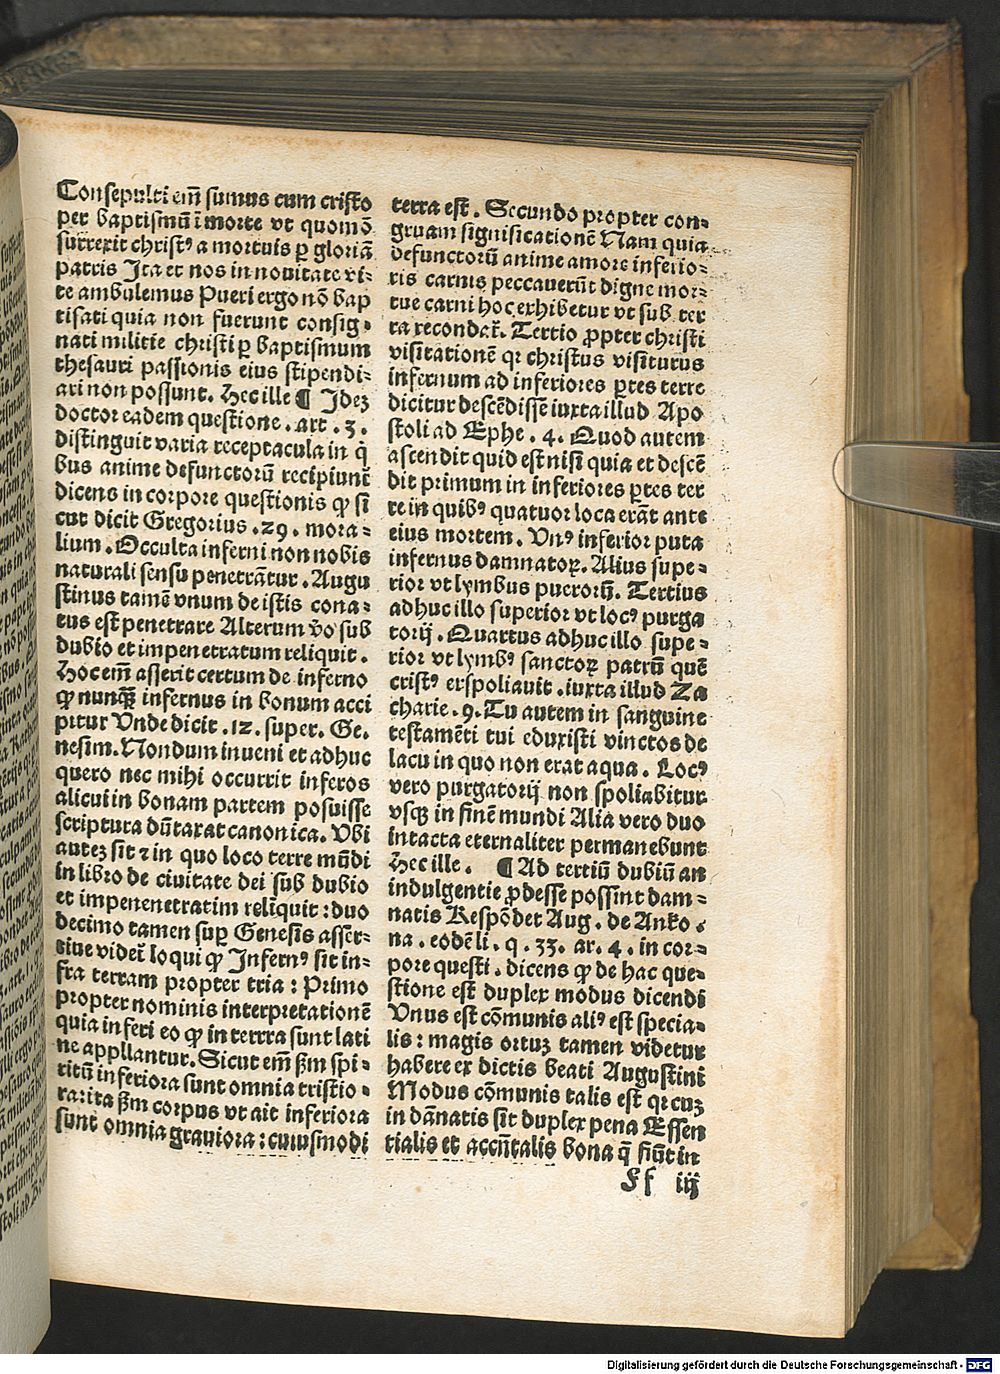 Consepulti em̄ sumus cum cristo
per baptismū ī morte vt quomō
surrexit christꝰ a mortuis ꝑ gloriā
patris Ita et nos in nouitate vi⸗
te ambulemus Pueri ergo nō bap
tisati quia non fuerunt consig⸗
nati militie christi ꝑ baptismum
thesauri passionis eius stipendi⸗
ari non possunt. Hec ille ¶ Ideꝫ
doctor eadem questione. art. 3.
distinguit varia receptacula in q̄
bus anime defunctorū recipiunt̄
dicens in corpore questionis ꝙ si
cut dicit Gregorius .29. mora⸗
lium. Occulta inferni non nobis
naturali sensu penetrātur. Augu
stinus tamē vnum de istis cona⸗
tus est penetrare Alterum v̄o sub
dubio et impenetratum reliquit.
Hoc em̄ asserit certum de inferno
ꝙ nunqꝫ̄ infernus in bonum acci
pitur Vnde dicit .12. super. Ge.
nesim. Nondum inueni et adhuc
quero nec mihi occurrit inferos
alicui in bonam partem posuisse
scriptura dūtaxat canonica. Vbi
auteꝫ sit ⁊ in quo loco terre mūdi
in libro de ciuitate dei sub dubio
et impenenetratim reliquit: duo
decimo tamen suꝑ Genesis asser⸗
tiue videt̄ loqui ꝙ Infernꝰ sit in⸗
fra terram propter tria: Primo
propter nominis interpretationē
quia inferi eo ꝙ in terrra sunt lati
ne appllantur. Sicut em̄ ẜm spi⸗
ritū inferiora sunt omnia tristio⸗
ra: ita ẜm corpus vt ait inferiora
sunt omnia grauiora: cuiusmodi
terra est. Secundo propter con⸗
gruam significationē Nam quia
defunctorū anime amore inferio⸗
ris carnis peccauerūt digne mor⸗
tue carni hoc exhibetur vt sub ter
ra recondāt̄. Tertio ꝓpter christi
visitationē qꝛ christus visiturus
infernum ad inferiores ꝑtes terre
dicitur descēdisse iuxta illud Apo
stoli ad Ephe. 4. Quod autem
ascendit quid est nisi quia et descē
dit primum in inferiores ꝑtes ter
re in quibꝰ quatuor loca erāt ante
eius mortem. Vnꝰ inferior puta
infernus damnatoꝝ. Alius supe⸗
rior vt lymbus puerorū. Tertius
adhuc illo superior vt locꝰ purga
torij. Quartus adhuc illo supe⸗
rior vt lymbꝰ sanctoꝝ patrū quē
cristꝰ exspoliauit. iuxta illud Za
charie. 9. Tu autem in sanguine
testamēti tui eduxisti vinctos de
lacu in quo non erat aqua. Locꝰ
vero purgatorij non spoliabitur
vsqꝫ in finē mundi Alia vero duo
intacta eternaliter permanebunt
Hec ille. ¶ Ad tertiū dubiū an
indulgentie ꝓdesse possint dam⸗
natis Respōdet Aug. de Anko.
na. eodē li. q. 33. ar. 4. in cor⸗
pore questi. dicens ꝙ de hac que⸗
stione est duplex modus dicendi
Vnus est cōmunis aliꝰ est specia⸗
lis: magis ortuꝫ tamen videtur
habere ex dictis beati Augustini
Modus cōmunis talis est qꝛ cuꝫ
in dānatis sit duplex pena Essen
tialis et accn̄talis bona q̄ fiūt in
Ff iij
Digitalisierung gefördert durch die Deutsche Forschungsgemeinschaft - DFG